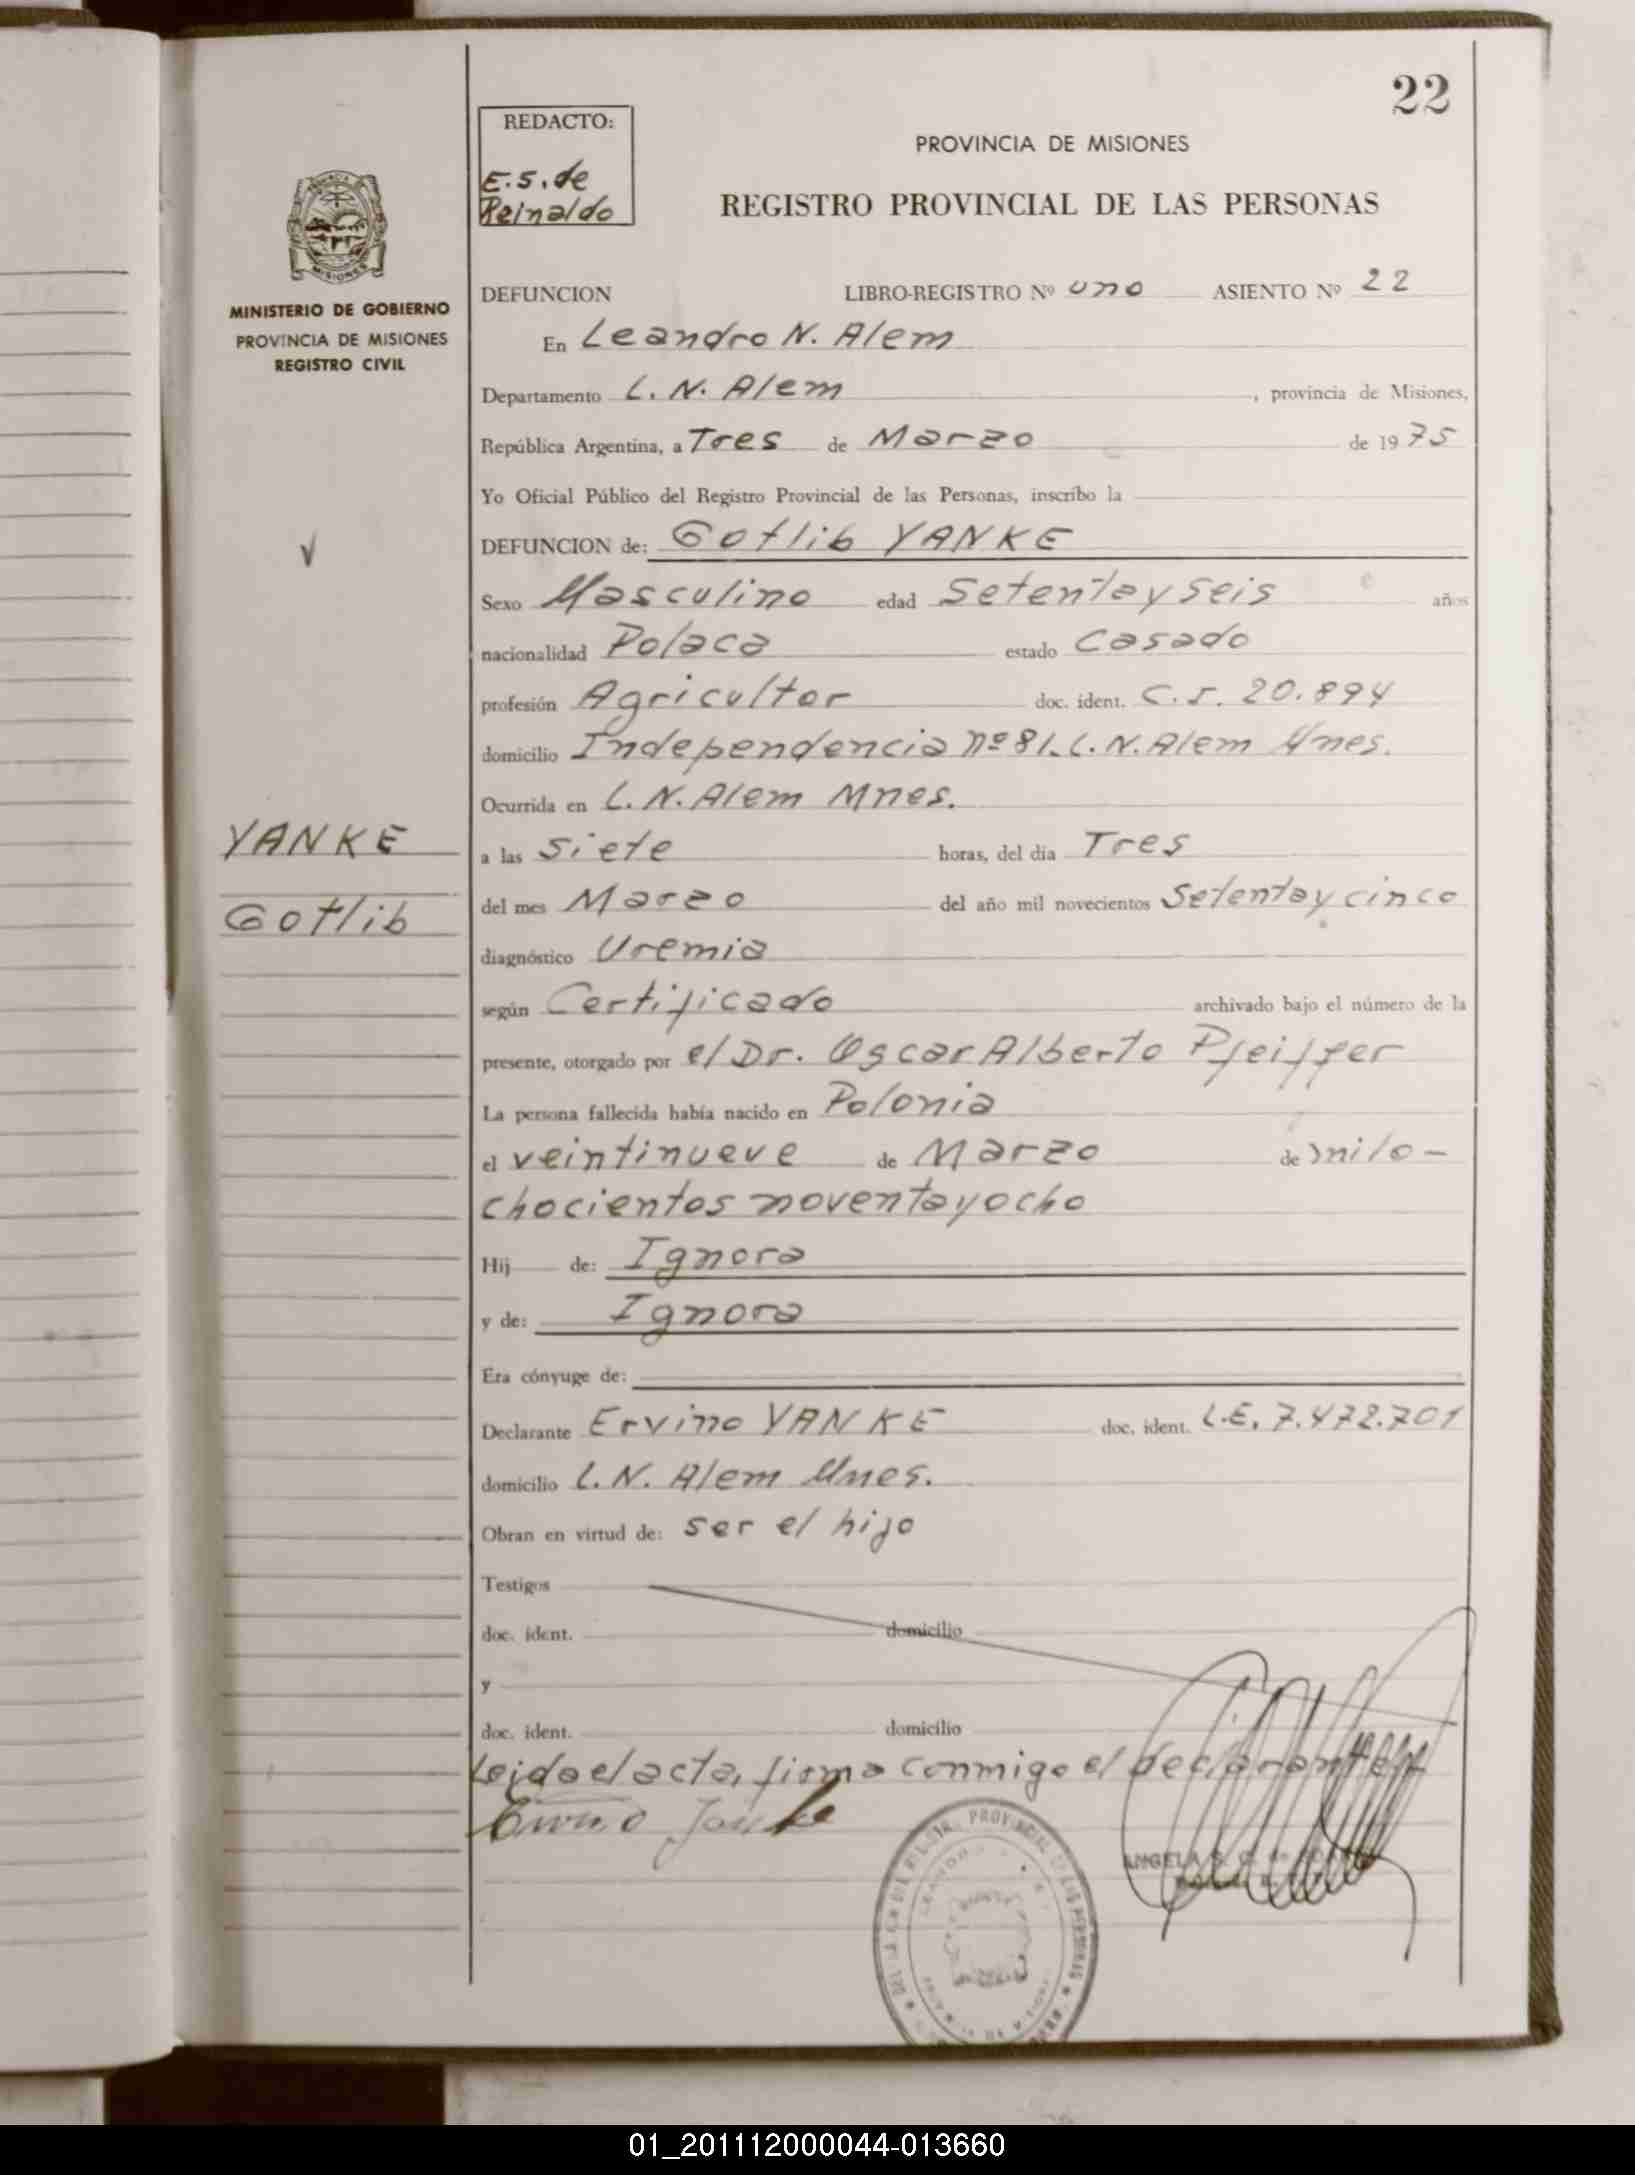 22
REDACTO:
E.S. de
Reinaldo
PROVINCIA DE MISIONES
REGISTRO PROVINCIAL DE LAS PERSONAS
MISIONES
MINISTERIO DE GOBIERNO
PROVINCIA DE MISIONES
REGISTRO CIVIL
DEFUNCION LIBRO-REGISTRO Nº uno ASIENTO Nº 22
En Leandro N. Alem
Departamento L. N. Alem, provincia de Misiones,
República Argentina, a Tres de Marzo de 1975
Yo Oficial Público del Registro Provincial de las Personas, inscribo la
DEFUNCION de: Gotlib YANKE
Sexo Masculino edad Setentayseis años
nacionalidad Polaca estado Casado
profesión Agricultor doc. ident. C.I. 20.894
domicilio Independencia nº 81. L.N. Alem Mnes.
Ocurrida en L. N. Alem Mnes.
YANKE
Gotlib
a las siete horas, del día Tres
del mes Marzo del año mil novecientos Setentaycinco
diagnóstico Uremia
según Certificado archivado bajo el número de la
presente, otorgado por el Dr. Oscar Alberto Pfeiffer
La persona fallecida había nacido en Polonia
el veintinueve de Marzo de milo-
chocientos noventayocho
Hij de: Ignora
y de: Ignora
Era cónyuge de:
Declarante Ervino YANKE doc. ident. L.E. 7.472.701
domicilio L.N. Alem Mnes.
Obran en virtud de: ser el hijo
Testigos
doc. ident. domicilio
y
doc. ident. domicilio
Leidaelacta, firma conmigo el declarante
ANGELA S. C. de
01_201112000044-013660